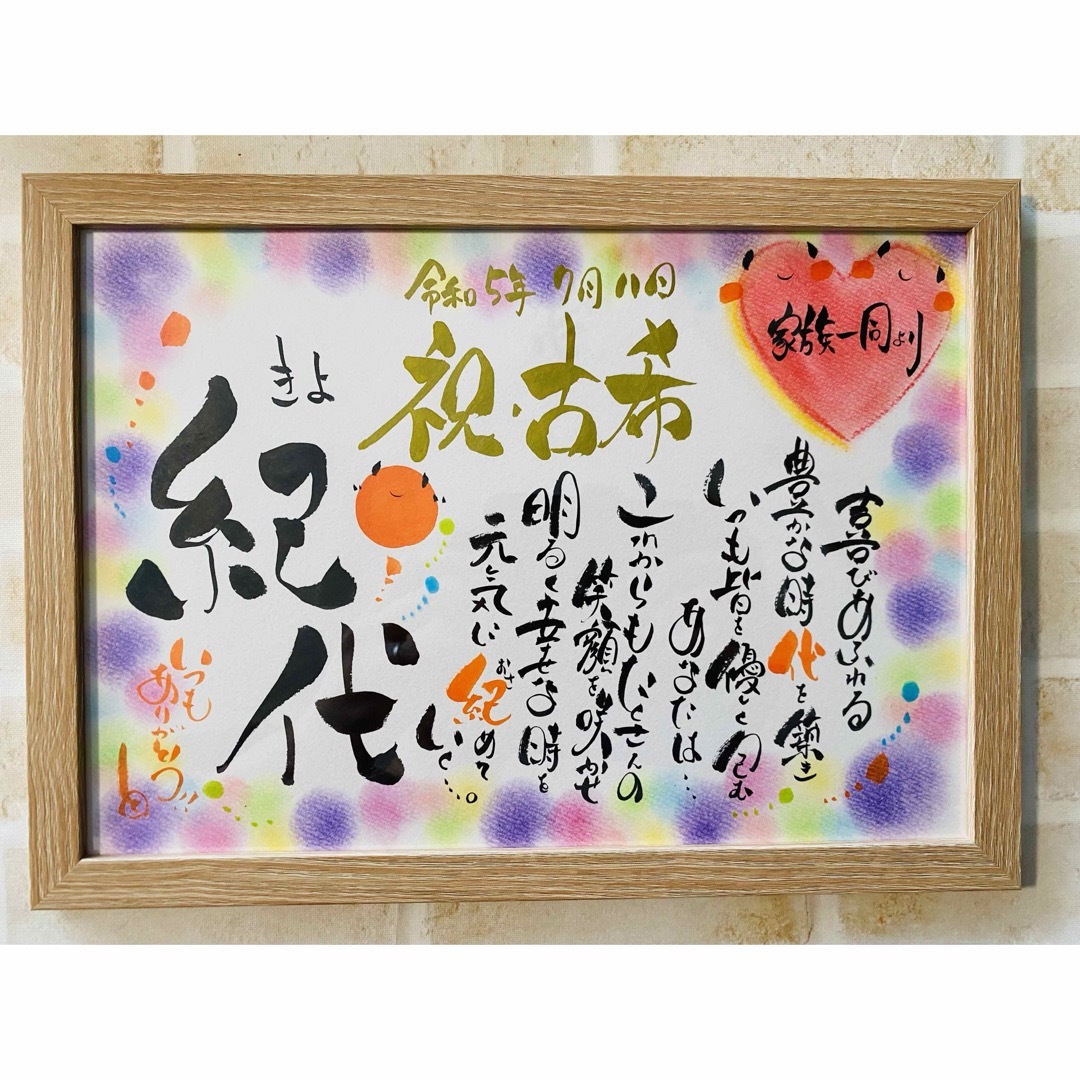 令和5年 7月11日
祝・古希
家族一同より
喜びあふれる
豊かな時代を築き
いつも皆を優しく包む
あなたは…
これからもたくさんの
笑顔を咲かせ
明るく幸せな時を
元気に紀めて
おさ
いと…。
きよ
紀代
いつも
ありがとう!!